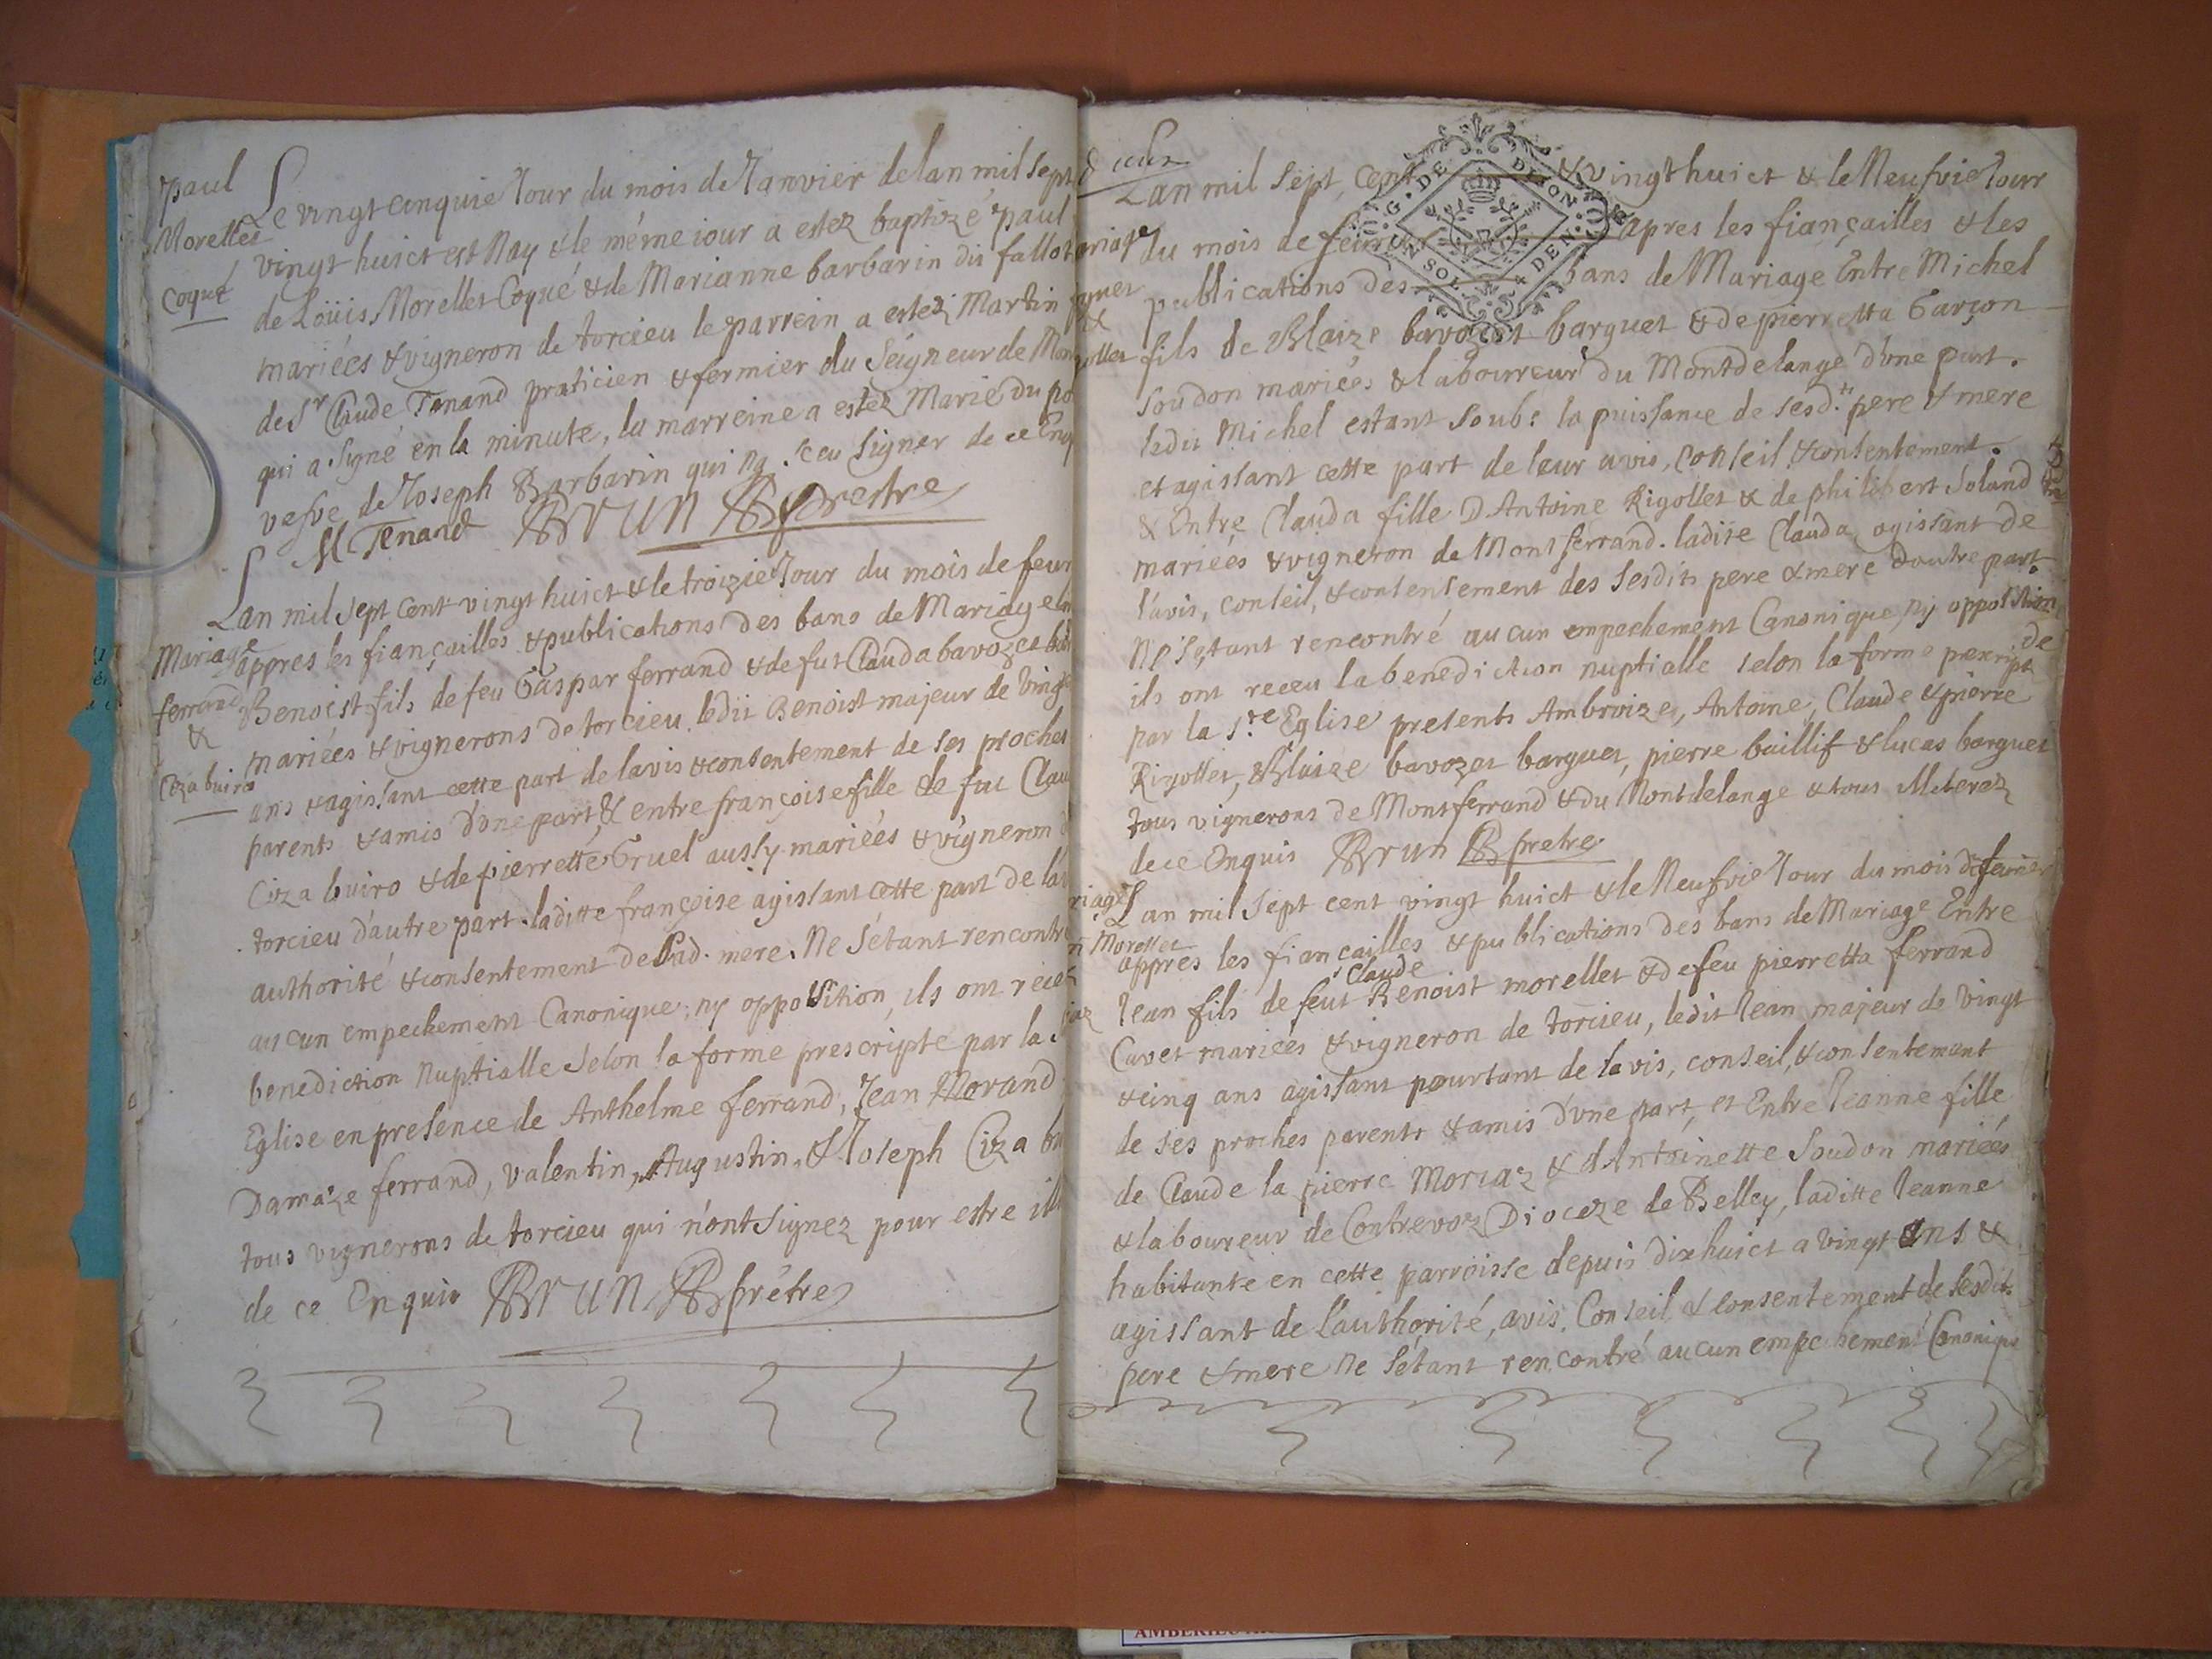 paul
Morellet
Coqué
Le vingt cinquie Jour du mois de Janvier de lan mil sept
vingt huict est Nay & le méme iour a estez baptizé paul
de Loüis Morellet Coqué & de Marianne barbarin dit fallot
mariées & vigneron de torcieu le parrein a estez Martin
de Sr Claude Tenand praticien & fermier du Seigneur de Mon
qui a signé en la minute, la marreine a estez Marie du po
vefve de Joseph Barbarin qui Na sceu signer de ce Enq
M Tenand BRUN prestre
Mariage
ferrand
&
Ciza buiro
Lan mil sept cent vingt huict & le troizie Jour du mois de feur
appres les fiançailles & publications des bans de Mariage En
Benoist fils de feu Gaspar ferrand & de fut Clauda bavozet
mariées & vignerons de torcieu ledit Benoist majeur de vingt
ans & agissant cette part de lavis & consentement de ses proches
parents & amis d'une part, & entre françoise fille de fut Clau
Ciza buiro & de pierrette Gruel aussy mariées & vigneron
torcieu d'autre part. laditte françoise agissant cette part de la
authorité & consentement de Lad. mere. Ne S'étant rencontré
aucun empechement Canonique, ny opposition, ils ont recet
benediction Nuptialle selon la forme prescripte par la
Eglise en presence de Anthelme ferrand, Jean Morand
Damaze ferrand, Valentin, Augustin, & Joseph Ciza bu
tous vignerons de torcieu qui n'ont signez pour estre ill
de ce Enquis BRUN prétre
Lan mil sept cent & vingt huict & le Neufvie Jour
du mois de feur apres les fiançailles & les
publications des bans de Mariage Entre Michel
fils de Blaize bavozet barguet & de pierretta Garçon
soudon mariées & laboureur du Montdelange d'une part.
ledit Michel estant soubs la puissance de sesd.ts pere & mere
et agissant cette part de leur avis, conseil, & consentement.
& Entre Clauda fille D'Antoine Rigollet & de philibert Soland
mariées & vigneron de Montferrand. ladite Clauda agissant de
l'avis, conseil, & consentement des sesdits pere & mere d'autre part.
Ne sétant rencontré aucun empechement Canonique, ny opposition
ils ont receu la benediction nuptialle selon la forme prexripte de
par la s.te Eglise presents Ambroize, Antoine, Claude & pierre
Rigollet, & Blaize bavozet barguet, pierre baillif & lucas barguet
tous vignerons de Montferrand & du Montdelange & tous illeterez
de ce Enquis BRUN prétre
Lan mil sept cent vingt huict & le Neufvie Jour du mois de feurier
appres les fiançailles & publications des bans de Mariage Entre
Jean fils de feut Claude Benoist morellet & de feu pierretta ferrand
Cavet mariées & vigneron de torcieu, ledit Jean majeur de vingt
& cinq ans agissant pourtant de lavis, conseil, & consentement
de ses proches parents & amis d'une part, et Entre Jeanne fille
de Claude la pierre Moriaz & d'Antoinette Soudon mariées
& laboureur de Contrevoz Dioceze de Belley, laditte Jeanne
habitante en cette parroisse depuis dixhuict a vingt ans &
agissant de l'authorité, avis, Conseil & consentement de sesdit
pere & mere Ne sétant rencontré aucun empechement Canonique
G. DE DIJON
UN SOL
DEN